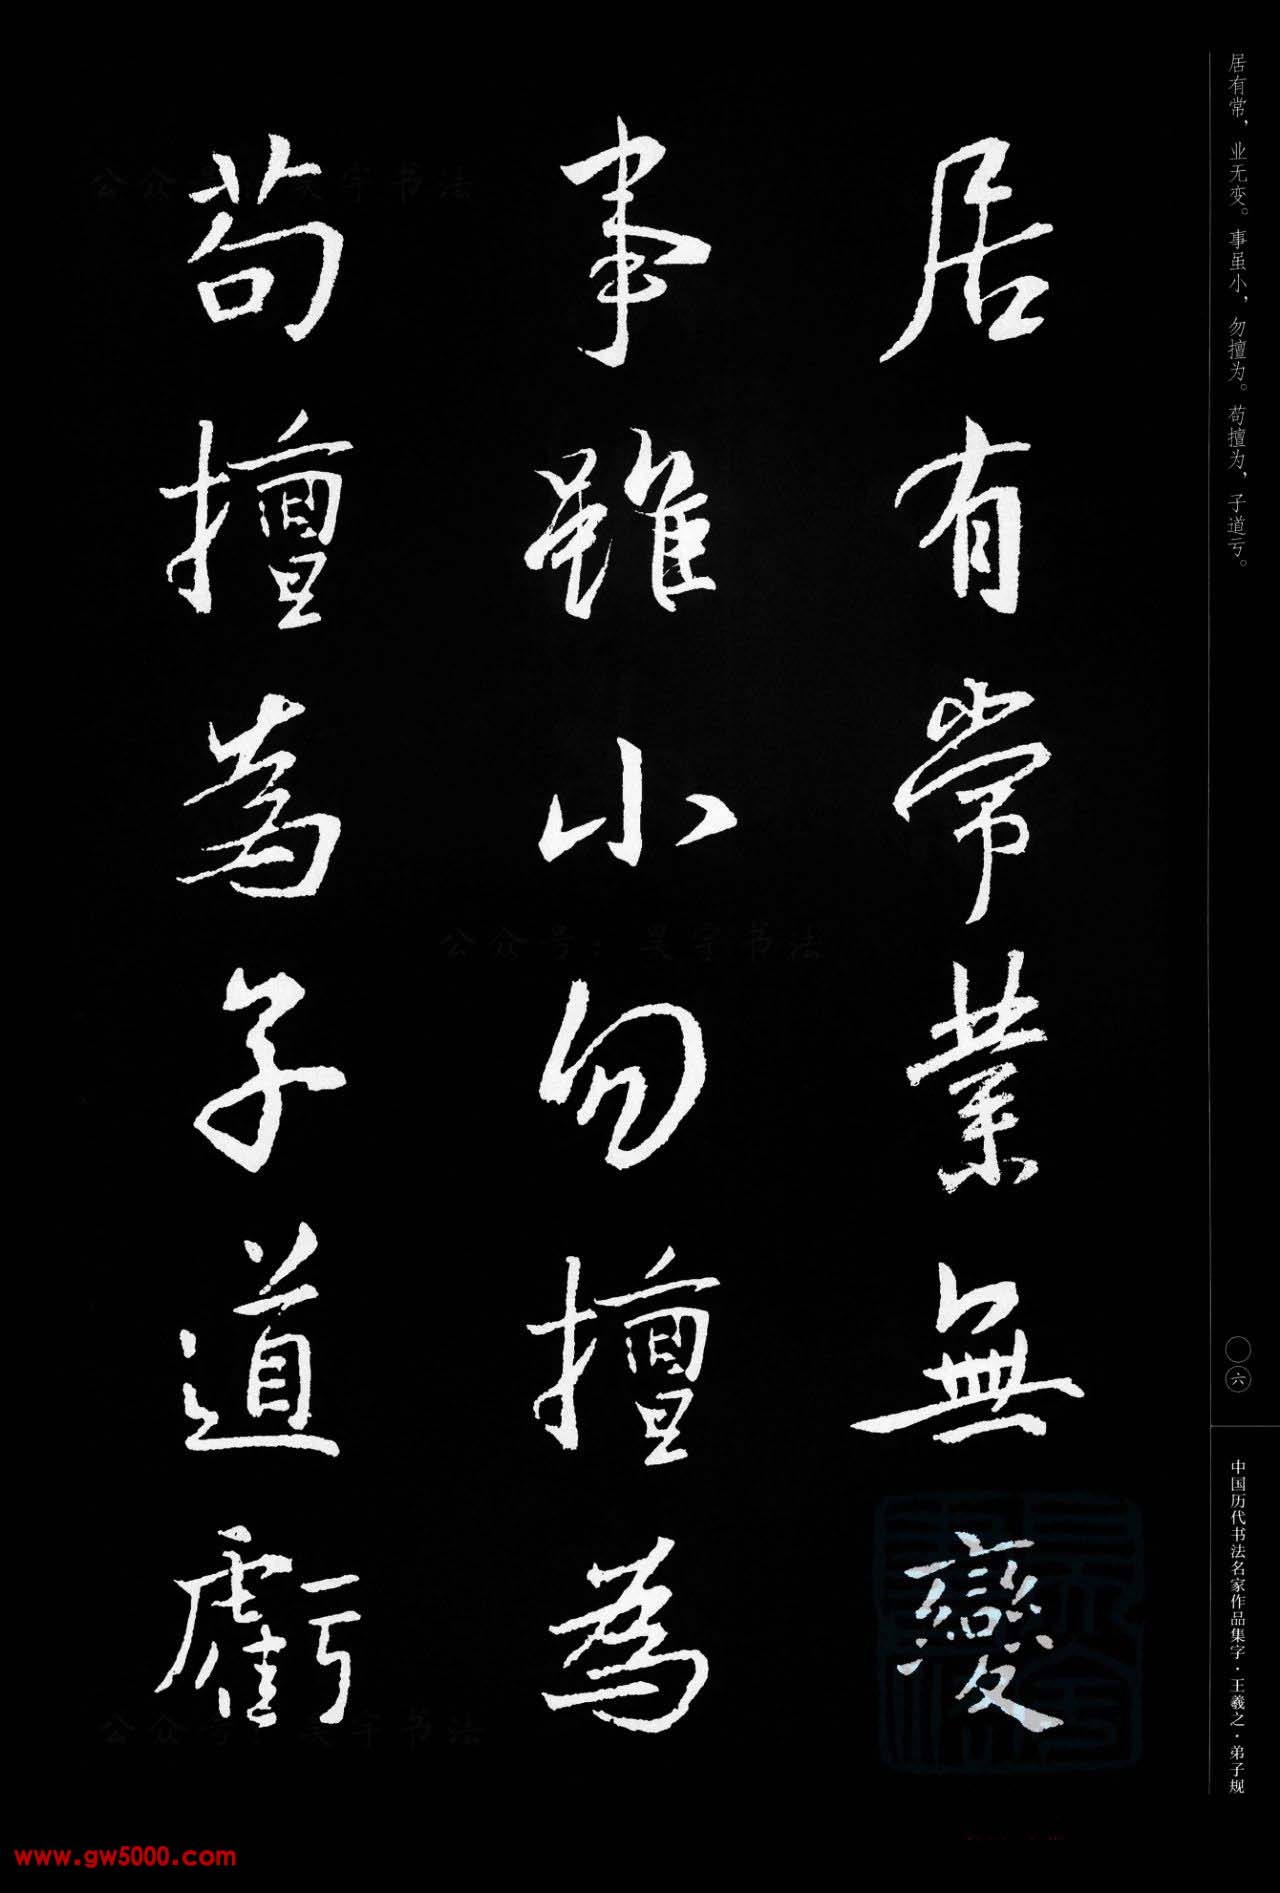 居有常，业无变。事虽小，勿擅为。苟擅为，子道亏。
居有常業無變
事雖小勿擅為
苟擅為子道虧
〇六
中国历代书法名家作品集字·王羲之·弟子规
公众号：昊宇书法
公众号：昊宇书法
公众号：昊宇书法
www.gw5000.com